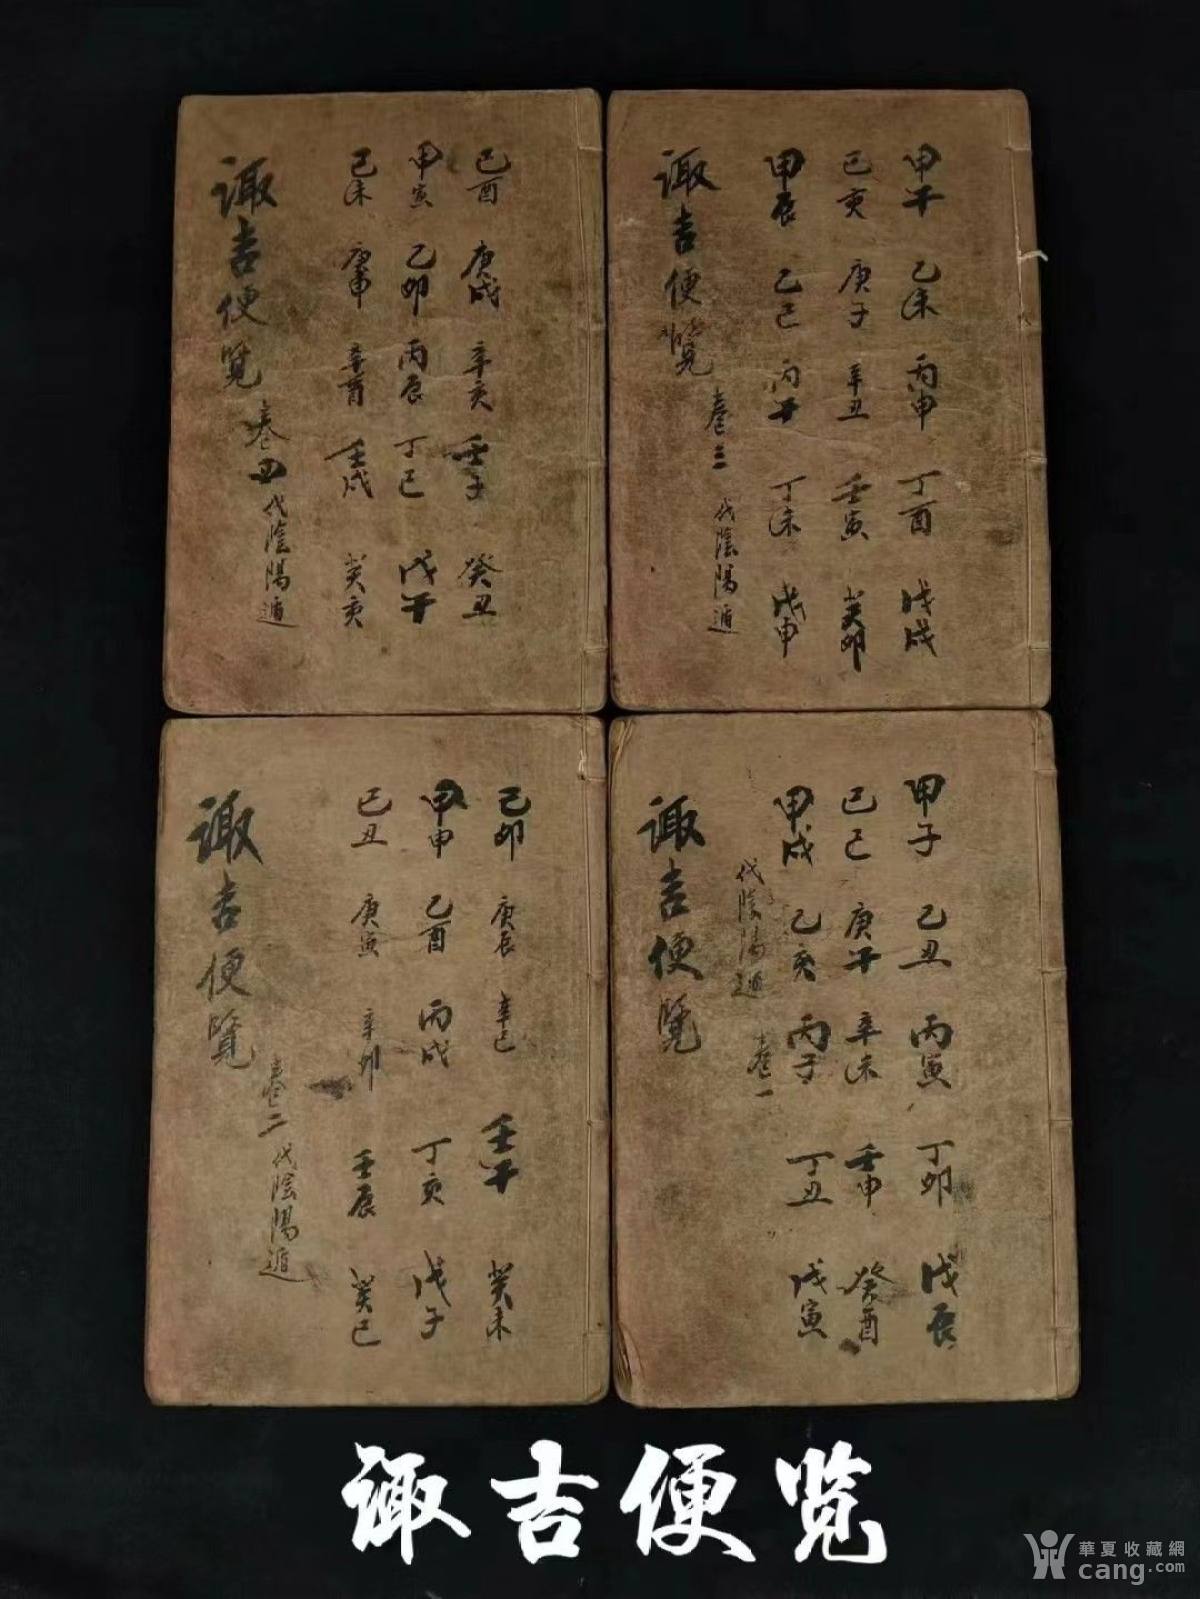 甲午 乙未 丙申 丁酉 戊戌
己亥 庚子 辛丑 壬寅 癸卯
甲辰 乙巳 丙午 丁未 戊申
諏吉便覽 卷三 代陰陽遁
己酉 庚戌 辛亥 壬子 癸丑
甲寅 乙卯 丙辰 丁巳 戊午
己未 庚申 辛酉 壬戌 癸亥
諏吉便覽 卷四 代陰陽遁
甲子 乙丑 丙寅 丁卯 戊辰
己巳 庚午 辛未 壬申 癸酉
甲戌 乙亥 丙子 丁丑 戊寅
代陰陽遁 卷一
諏吉便覽
己卯 庚辰 辛巳 壬午 癸未
甲申 乙酉 丙戌 丁亥 戊子
己丑 庚寅 辛卯 壬辰 癸巳
諏吉便覽 卷二 代陰陽遁
诹吉便览
華夏收藏網
cang.com